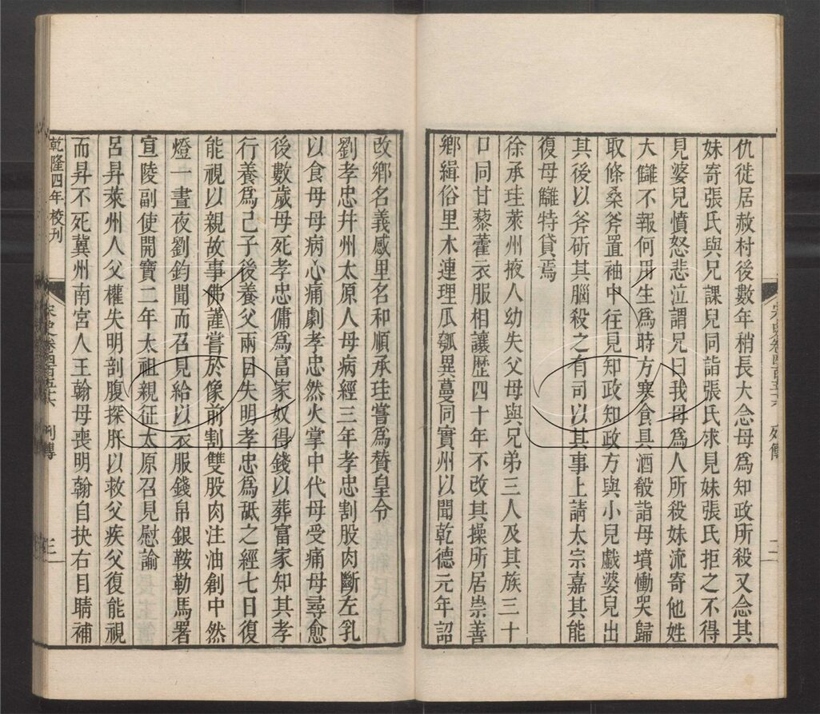 仇徙居赦村後數年稍長大念母爲知政所殺又念其
妹寄張氏與兄課兒同詣張氏求見妹張氏拒之不得
見婆兒憤怒悲泣謂兄曰我母爲人所殺妹流寄他姓
大讎不報何用生爲時方寒食具酒殽詣母墳慟哭歸
取條桑斧置袖中往見知政知政方與小兒戲婆兒出
其後以斧斫其腦殺之有司以其事上請太宗嘉其能
復母讎特貸焉
徐承珪萊州掖人幼失父母與兄弟三人及其族三十
口同甘藜藿衣服相讓歷四十年不改其操所居崇善
鄉緝俗里木連理瓜瓠異蔓同實州以聞乾德元年詔
宋史卷四百五十六 列傳 二
改鄉名義感里名和順承珪嘗爲贊皇令
劉孝忠幷州太原人母病經三年孝忠割股肉斷左乳
以食母母病心痛劇孝忠然火掌中代母受痛母尋愈
後數歲母死孝忠傭爲富家奴得錢以葬富家知其孝
行養爲己子後養父兩目失明孝忠爲舐之經七日復
能視以親故事佛謹嘗於像前割雙股肉注油創中然
燈一晝夜劉鈞聞而召見給以衣服錢帛銀鞍勒馬署
宣陵副使開寶二年太祖親征太原召見慰諭
呂昇萊州人父權失明剖腹探肝以救父疾父復能視
而昇不死冀州南宮人王翰母喪明翰自抉右目睛補
乾隆四年校刊
宋史卷四百五十六 列傳 三